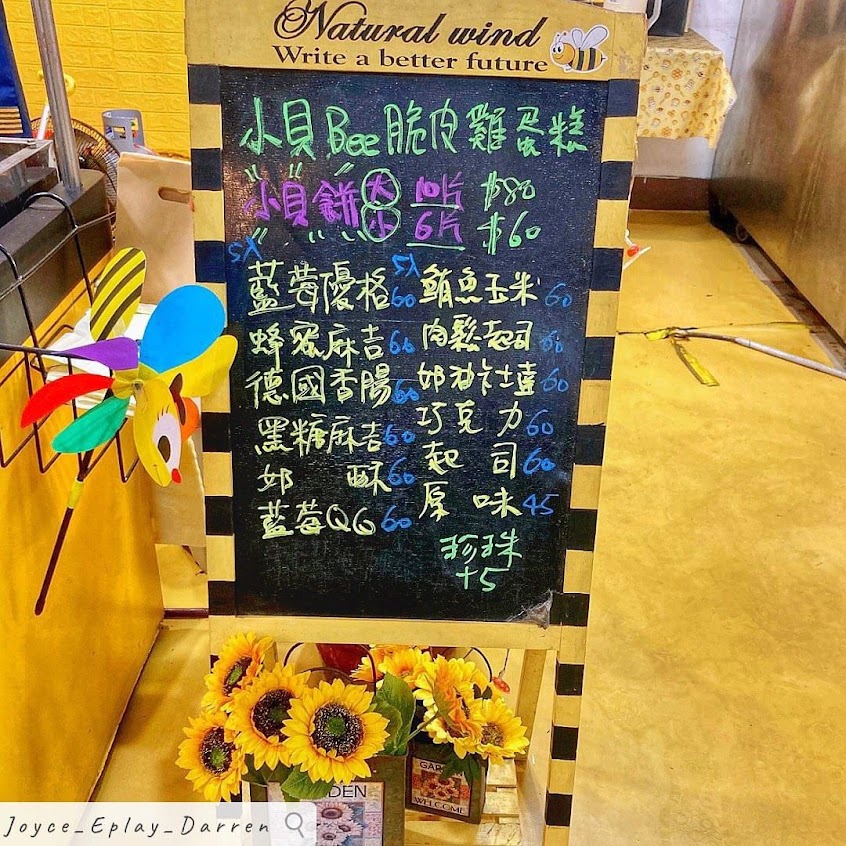 Natural wind
Write a better future
小貝Bee脆皮雞蛋糕
小貝餅 大 10片 $80
小 6片 $60
藍莓優格60 鮪魚玉米60
蜂蜜麻吉60 肉鬆起司60
德國香腸60 奶油卡達60
黑糖麻吉60 巧克力60
奶酥60 起司60
藍莓QQ60 原味45
珍珠
+5
GARDEN
WELCOME
DEN
Joyce_Eplay_Darren